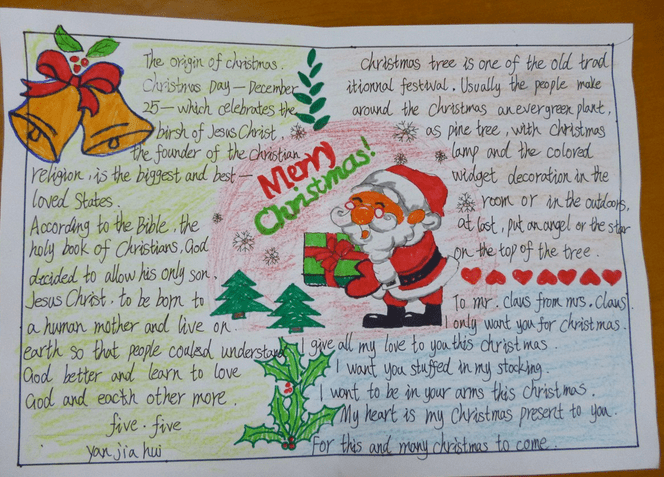 The origin of christmas.
Christmas Day — December
25 — which celebrates the
birsh of Jesus Christ,
the founder of the Christian
religion, is the biggest and best —
loved States.
According to the Bible, the
holy book of Christians, God
decided to allow his only son.
Jesus Christ, to be born to
a human mother and live on
earth so that people coulsd understand
God better and learn to love
God and eacth other more.
five.five
yan jia hui
Merry
Christmas!
Christmas tree is one of the old trad
itionnal festival. Usually the people make
around the Christmas an evergreen plant,
as pine tree, with christmas
lamp and the colored
widget decoration in the
room or in the outdoors,
at last, put an angel or the star
on the top of the tree.
To mr. claus from mrs. Claus.
I only want you for christmas.
I give all my love to you this christmas.
I want you stuffed in my stocking.
I want to be in your arms this christmas.
My heart is my Christmas present to you.
for this and many christmas to come.